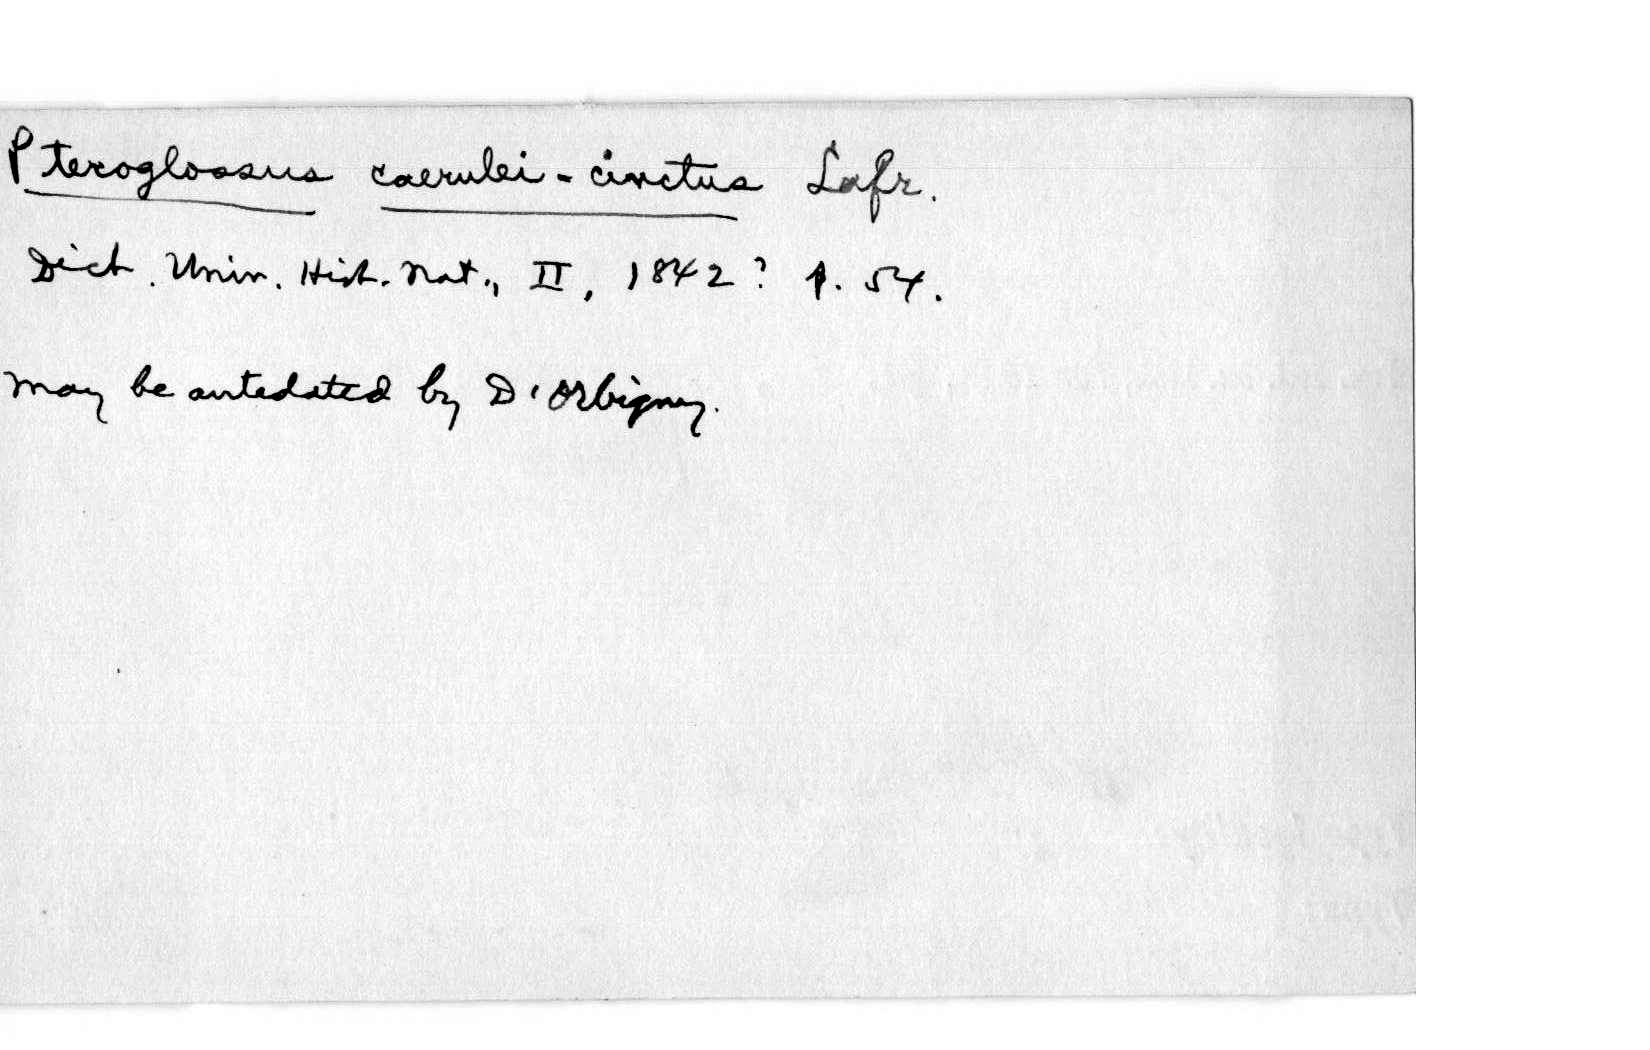 Pteroglossus caerulei-cinctus Lafr.
Dict. Univ. Hist. Nat., II, 1842? p. 54.
May be antedated by D'Orbigny.